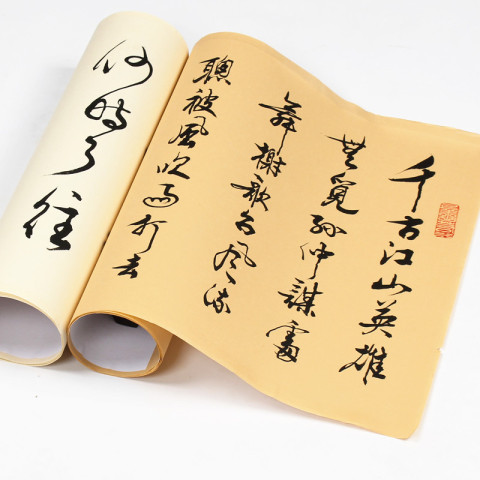 千古江山英雄
無覓孫仲謀處
舞榭歌台風流
總被風吹雨打去
何時了往